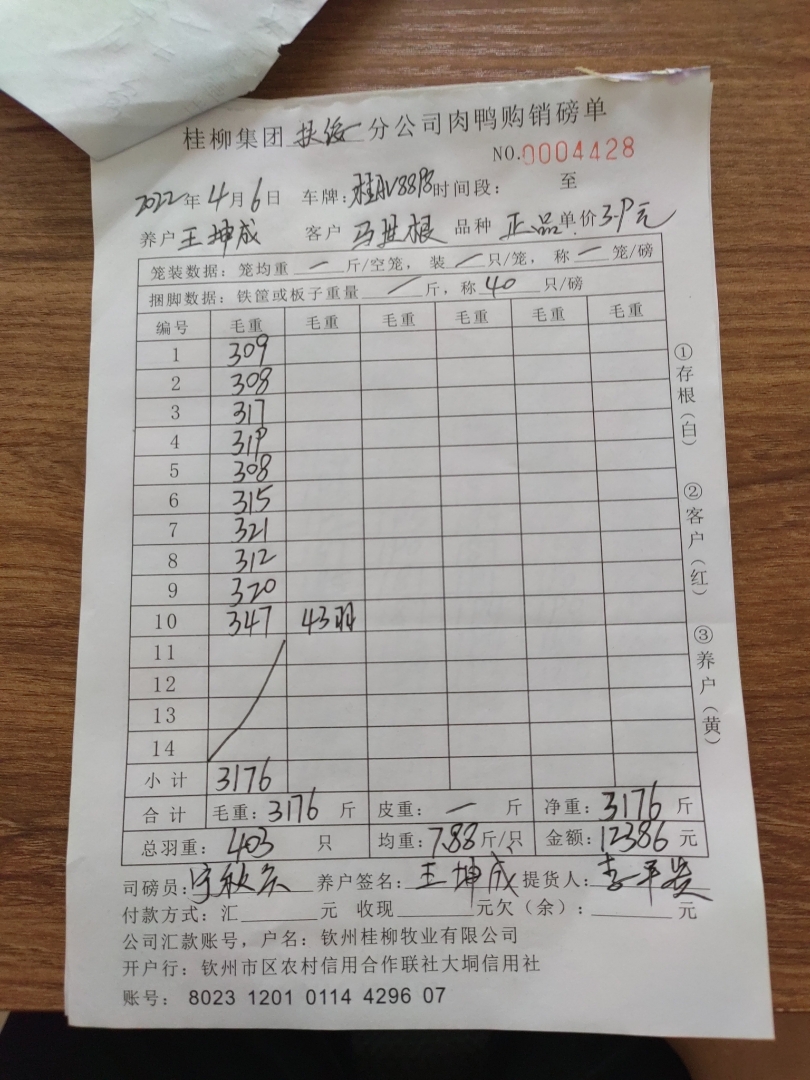 桂柳集团扶绥分公司肉鸭购销磅单
NO.0004428
2022年4月6日 车牌：桂AV8898 时间段： 至
养户 王坤成 客户 马世根 品种 正品 单价 3.9元
笼装数据：笼均重 一 斤/空笼，装 一 只/笼，称 一 笼/磅
捆脚数据：铁筐或板子重量 一 斤，称 40 只/磅
编号 毛重 毛重 毛重 毛重 毛重 毛重
1 309
2 308
3 317
4 319
5 308
6 315
7 321
8 312
9 320
10 347 43羽
11
12
13
14
小计 3176
合计 毛重：3176 斤 皮重：一 斤 净重：3176 斤
总羽重：403 只 均重：7.88斤/只 金额：12386 元
司磅员： 养户签名：王坤成 提货人：
付款方式：汇 元 收现 元欠（余）： 元
公司汇款账号，户名：钦州桂柳牧业有限公司
开户行：钦州市区农村信用合作联社大垌信用社
账号： 8023 1201 0114 4296 07
①存根（白）
②客户（红）
③养户（黄）